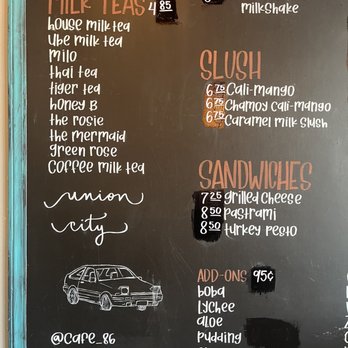 MILK TEAS 4 85
house milk tea
Ube milk tea
milo
thai tea
tiger tea
honey B
the rosie
the mermaid
green rose
Coffee milk tea
union
city
@cafe_86
milkshake
SLUSH
6 75 Cali-mango
6 75 Chamoy Cali-mango
6 75 Caramel milk slush
SANDWICHES
7 25 grilled cheese
8 50 pastrami
8 50 turkey pesto
ADD-ONS 95¢
boba
lychee
aloe
pudding